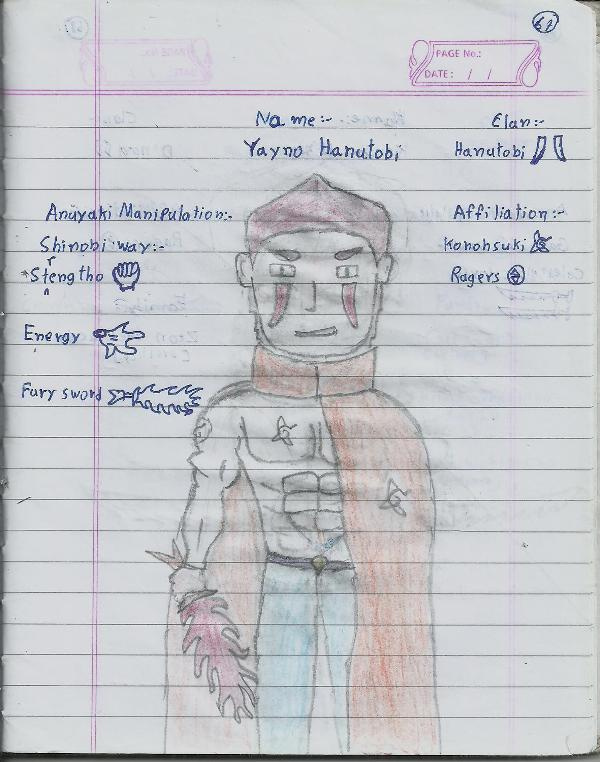 62
PAGE No.:
DATE: / /
Name:-
Yayno Hanutobi
Clan:-
Hanutobi
Anuyaki Manipulation:-
Shinobi way:-
*Strengtho
Energy
Fury sword
Affiliation:-
Konohsuki
Ragers